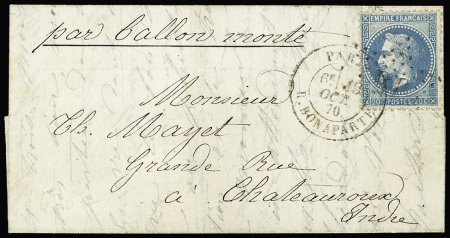 par ballon monté
EMPIRE FRANÇAIS
20 C POSTES 20 C
PARIS
OCT
70
R. BONAPARTE
Monsieur
Th. Mayet
Grande Rue
à Chateauroux
Indre